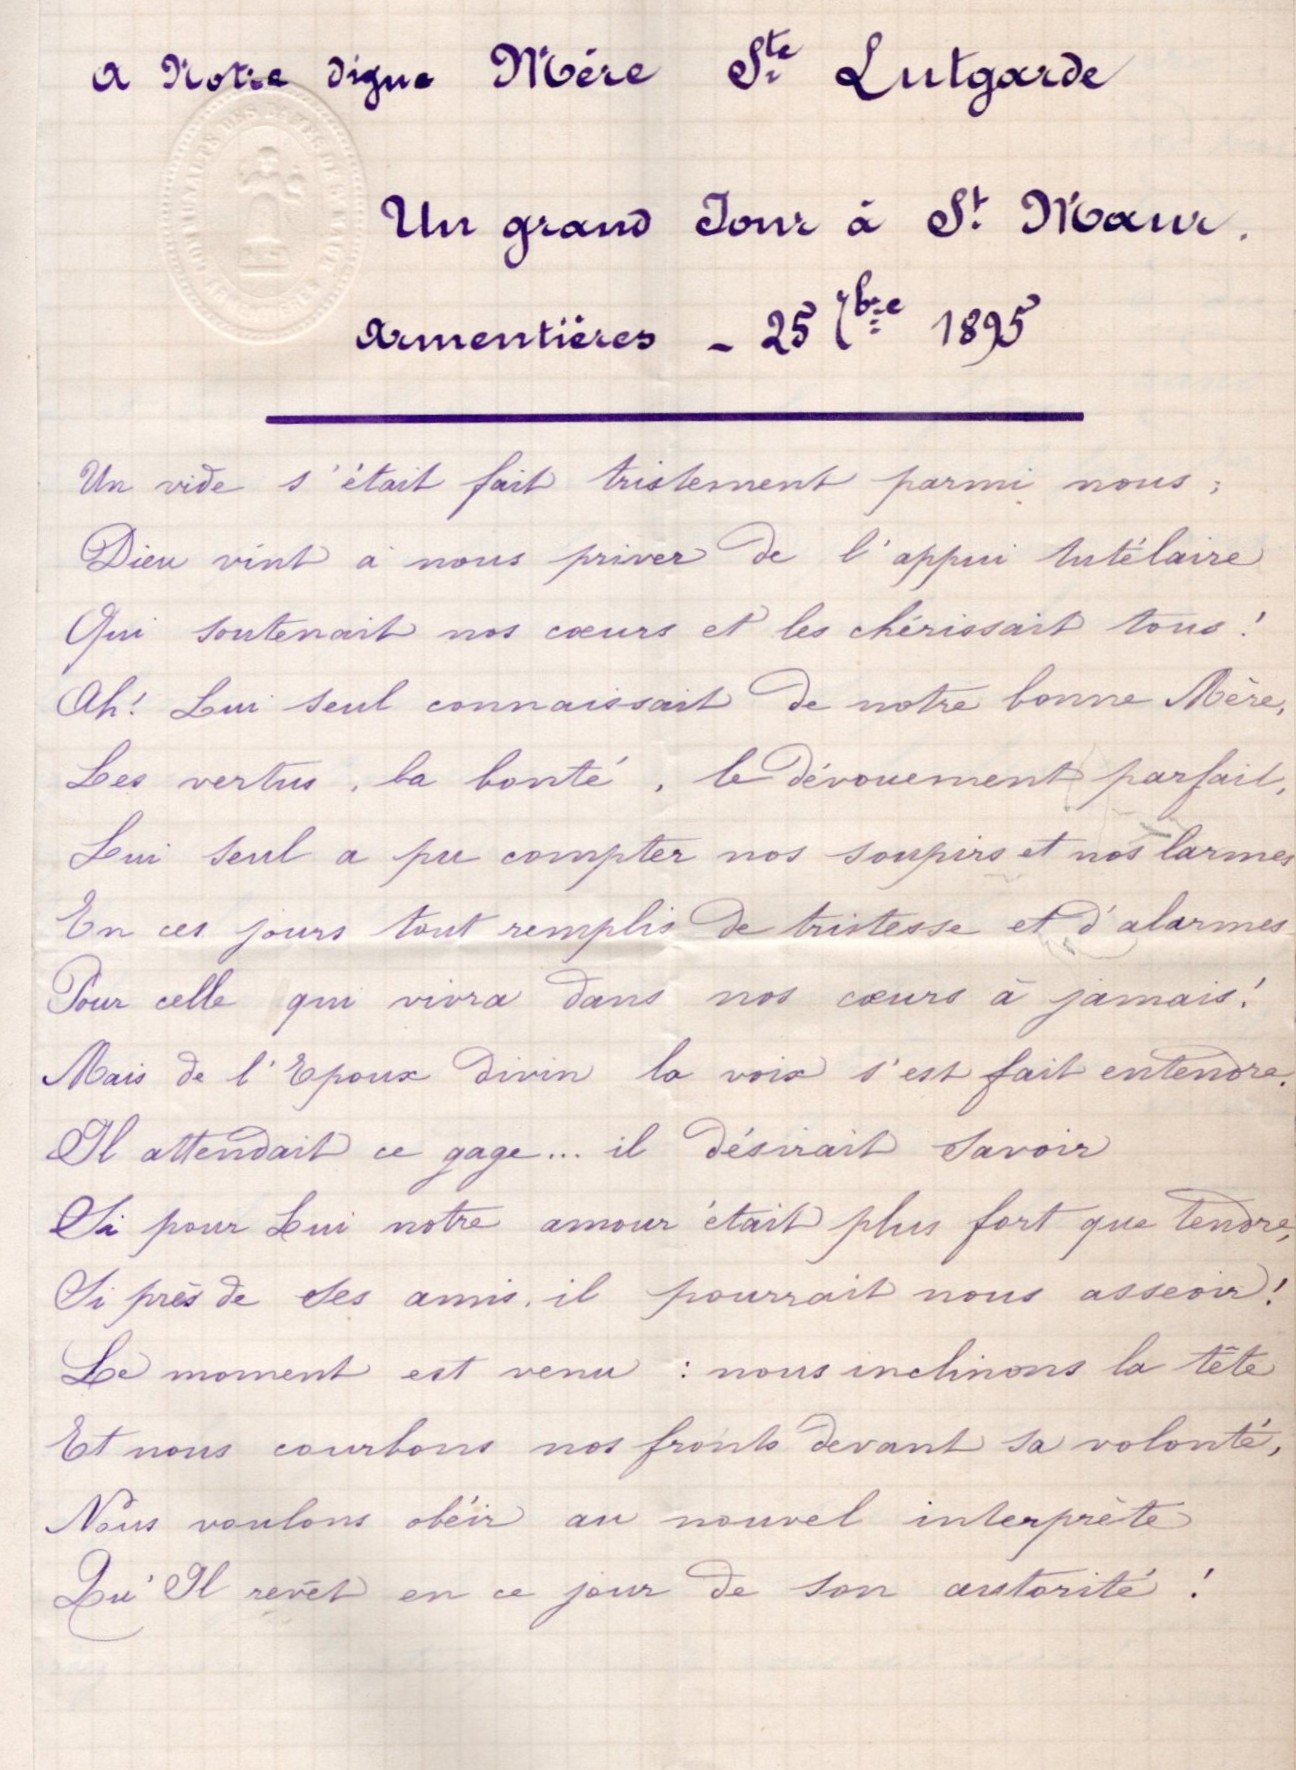 A Notre digne Mère Ste Lutgarde
Un grand Jour à St Maur.
Armentières - 25 7bre 1895
Un vide s'était fait tristement parmi nous ;
Dieu vint à nous priver de l'appui tutélaire
Qui soutenait nos cœurs et les chérissait tous !
Ah! Lui seul connaissait de notre bonne Mère,
Les vertus, la bonté, le dévouement parfait,
Lui seul a pu compter nos soupirs et nos larmes
En ces jours tout remplis de tristesse et d'alarmes
Pour celle qui vivra dans nos cœurs à jamais !
Mais de l'Epoux divin la voix s'est fait entendre.
Il attendait ce gage... il désirait savoir
Si pour Lui notre amour était plus fort que tendre,
Si près de ses amis, il pourrait nous asseoir !
Le moment est venu : nous inclinons la tête
Et nous courbons nos fronts devant sa volonté,
Nous voulons obéir au nouvel interprète
Qu'Il revêt en ce jour de son autorité !